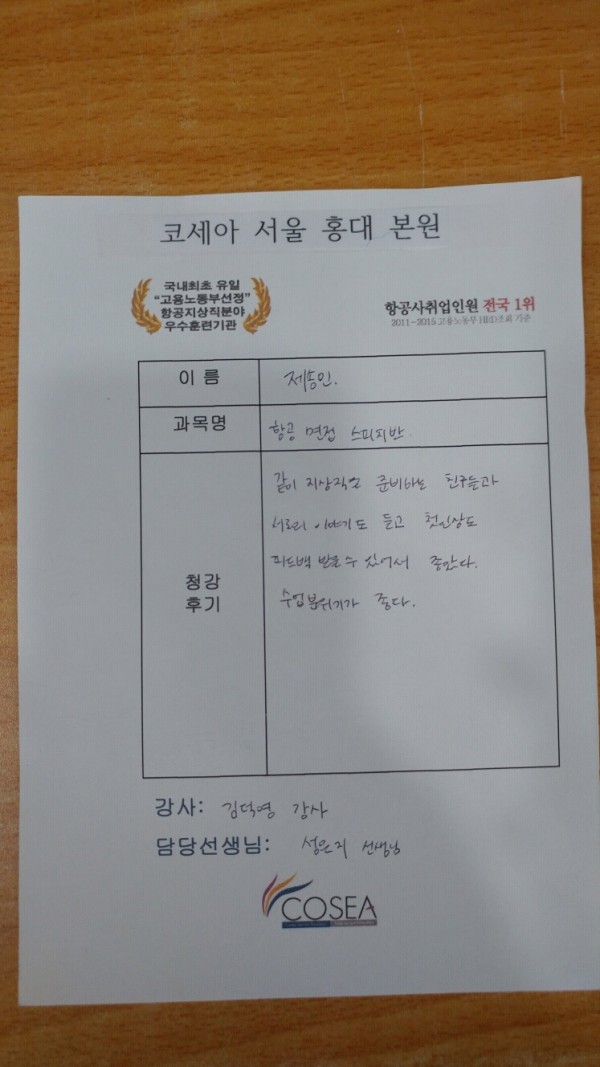 코세아 서울 홍대 본원
국내최초 유일
"고용노동부선정"
항공지상직분야
우수훈련기관
항공사취업인원 전국 1위
2011~2015 고용노동부 HRD조회 기준
이 름
제송인.
과목명
항공 면접 스피피반.
청강
후기
같이 지상직으 준비하는 친구들과
서로의 이야기도 듣고 첫인상도
피드백 받을수 있어서 좋았다.
수업분위기가 좋다.
강사: 김덕영 강사
담당선생님: 성은지 선생님
COSEA